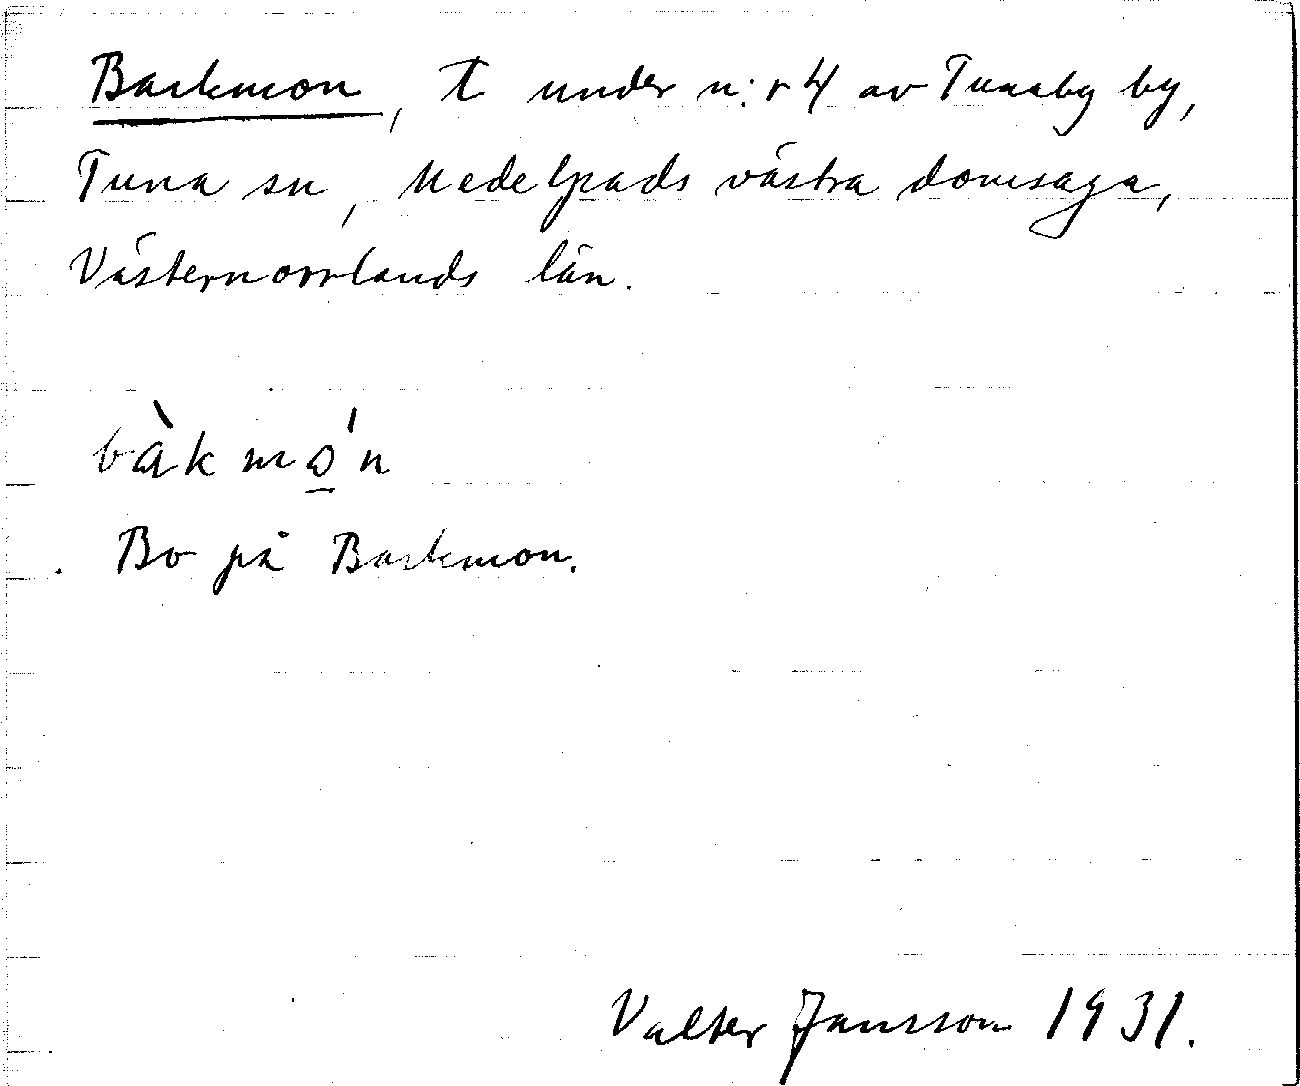 Backmon, t under n:r 4 av Tunaby by,
Tuna sn, Medelpads västra domsaga,
Västernorrlands län.
bàkmo̲ ́n
Bo på Backmon.
Valter Jansson 1931.